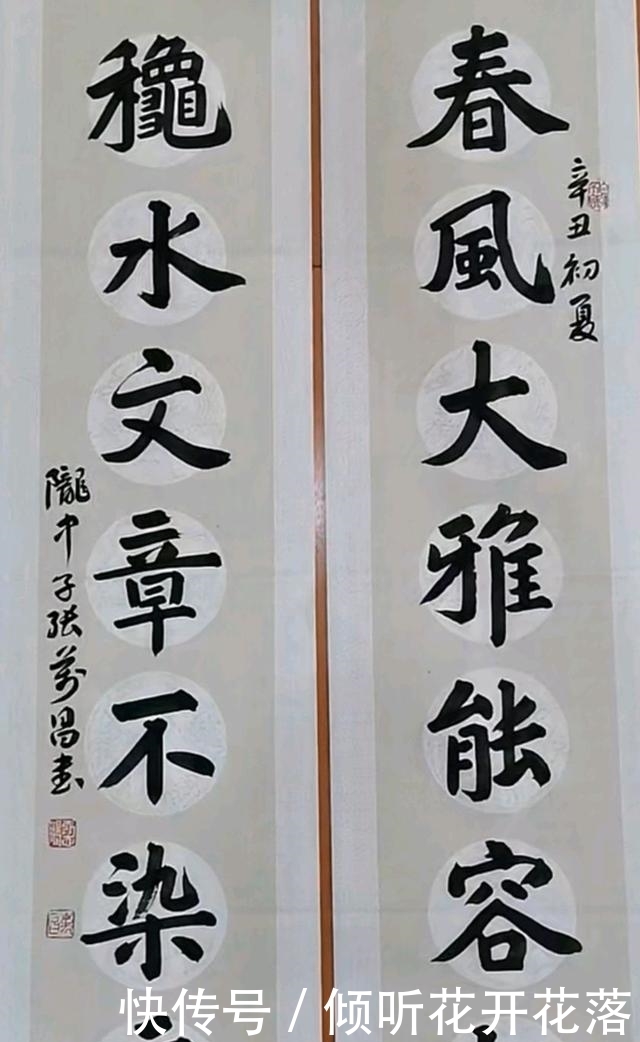 春風大雅能容
辛丑初夏
龝水文章不染
隴中子張萬昌書
快传号 / 倾听花开花落